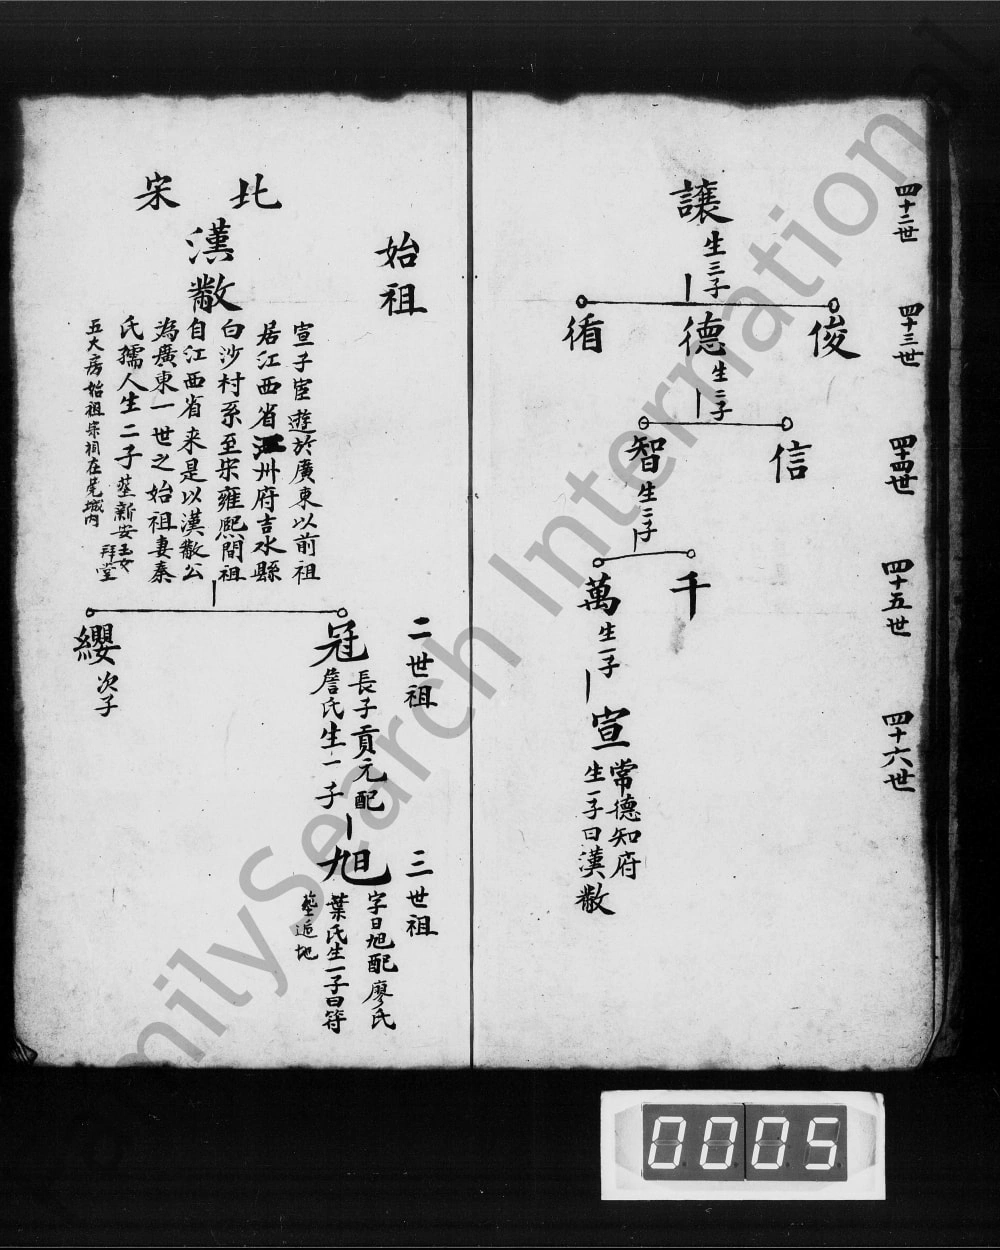 四十二世
四十三世
四十四世
四十五世
四十六世
讓
生三子
俊
德
循
生二子
信
智
生二子
千
萬
生一子
宣
常德知府
生一子曰漢散
始祖
北宋
漢散
宣子宦遊於廣東以前祖
居江西省江州府吉水縣
白沙村系至宋雍熙間祖
自江西省来是以漢散公
為廣東一世之始祖妻秦
氏孺人生二子塟新安玉女
拜堂
五大房始祖宗祠在莞城内
二世祖
冠
長子貢元配
詹氏生一子
纓
次子
三世祖
旭
字曰旭配廖氏
葉氏生一子曰符
塟逅地
FamilySearch International
0005